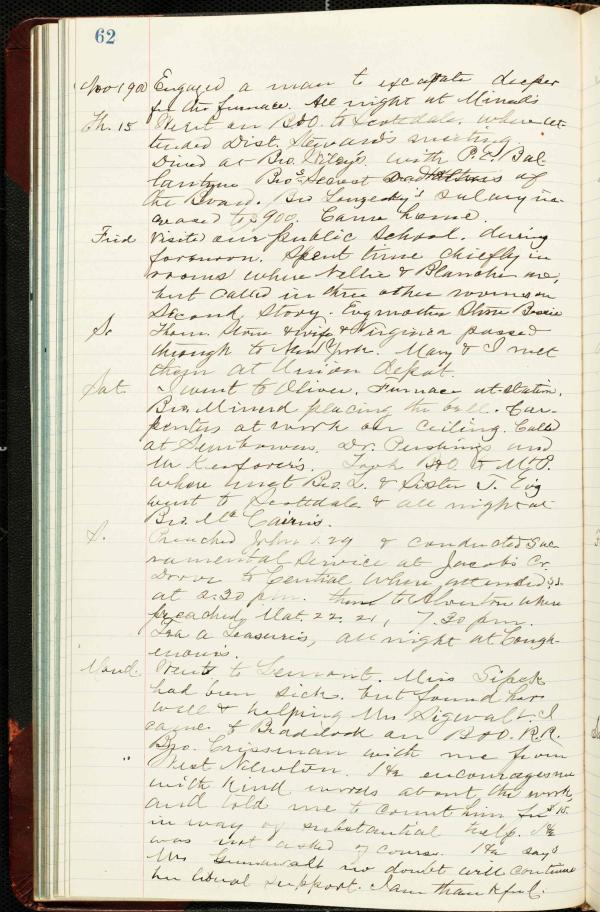 62
Nov 1900 Engaged a man to excavate deeper
for the furnace. All night at Minerd's
Th. 15 Went on B&O. to Scottdale. where at-
tended Dist. Steward's meeting.
Dined at Bro. Wiley's with P.E. Bal
lantyne Bros. Secrest of
the Board. Bro salary in-
creased to $900. Came home.
Frid Visited our public school. during
forenoon. Spent time chiefly in
rooms where Nellie & Blanche are,
but called in three other rooms on
second story. Evg mother Stone Bessie
Thom. Stone & wife & Virginia passed
through to New York. Mary & I met
them at Union depot.
Sat. I went to Oliver. Furnace at station.
Bro. Minerd placing the bell. Car-
penters at work on ceiling. Called
at Dr. and
Took B&O. to Mt. P.
where met Bro. L. & Sister J. Evg
went to Scottdale & all night at
Bro. Mc Cairns.
S. Preached John 1.29 & conducted Sac
ramental service at Jacobs Cr.
Drove to Central where attended S.S.
at 2.30 p.m. to Alverton where
preached, Mat. 22. 21, 7.30 p.m.
Tea a Leasures, all night at Cough-
enour's.
Mond. Went to Lemont. Miss
had been sick. but found her
well & helping Mrs Sigwalt. I
came to Braddock on B&O. R.R.
Bro. Crissman with me from
" West Newton. He encourages me
with kind words about the work,
and told me to count him for $15.
in way of substantial help. He
was not asked of course. He says
Mrs no doubt will continue
her liberal support. I am thankful.